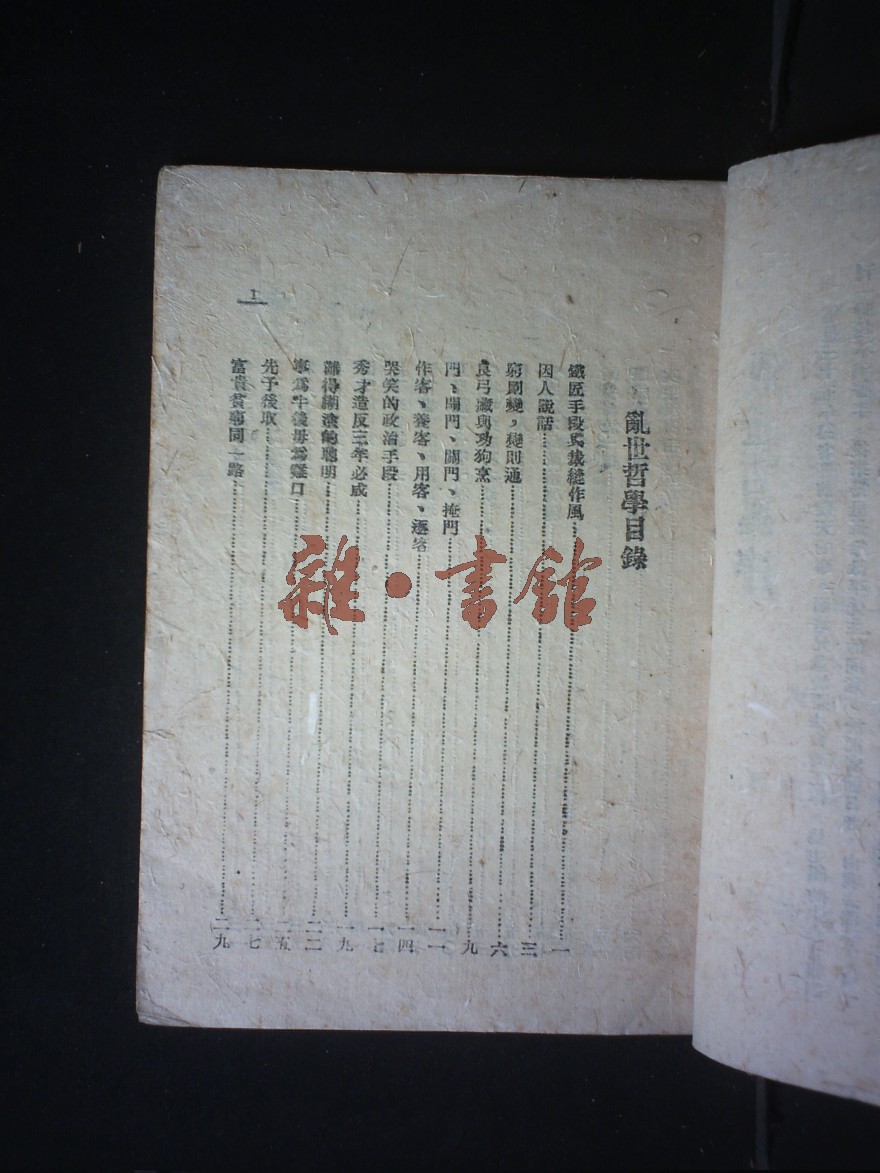 亂世哲學目錄
鐵匠手段裁縫作風……一
因人說話……三
窮則變，變則通……六
良弓藏與功狗烹……九
門、開門、關門、掩門……一一
作客、養客、用客、逐客……一四
哭笑的政治手段……一七
秀才造反三年必成……一九
難得糊塗的聰明……二二
寧爲牛後毋爲雞口……二五
先予後取……二七
富貴貧窮同一路……二九
1
雜·書館